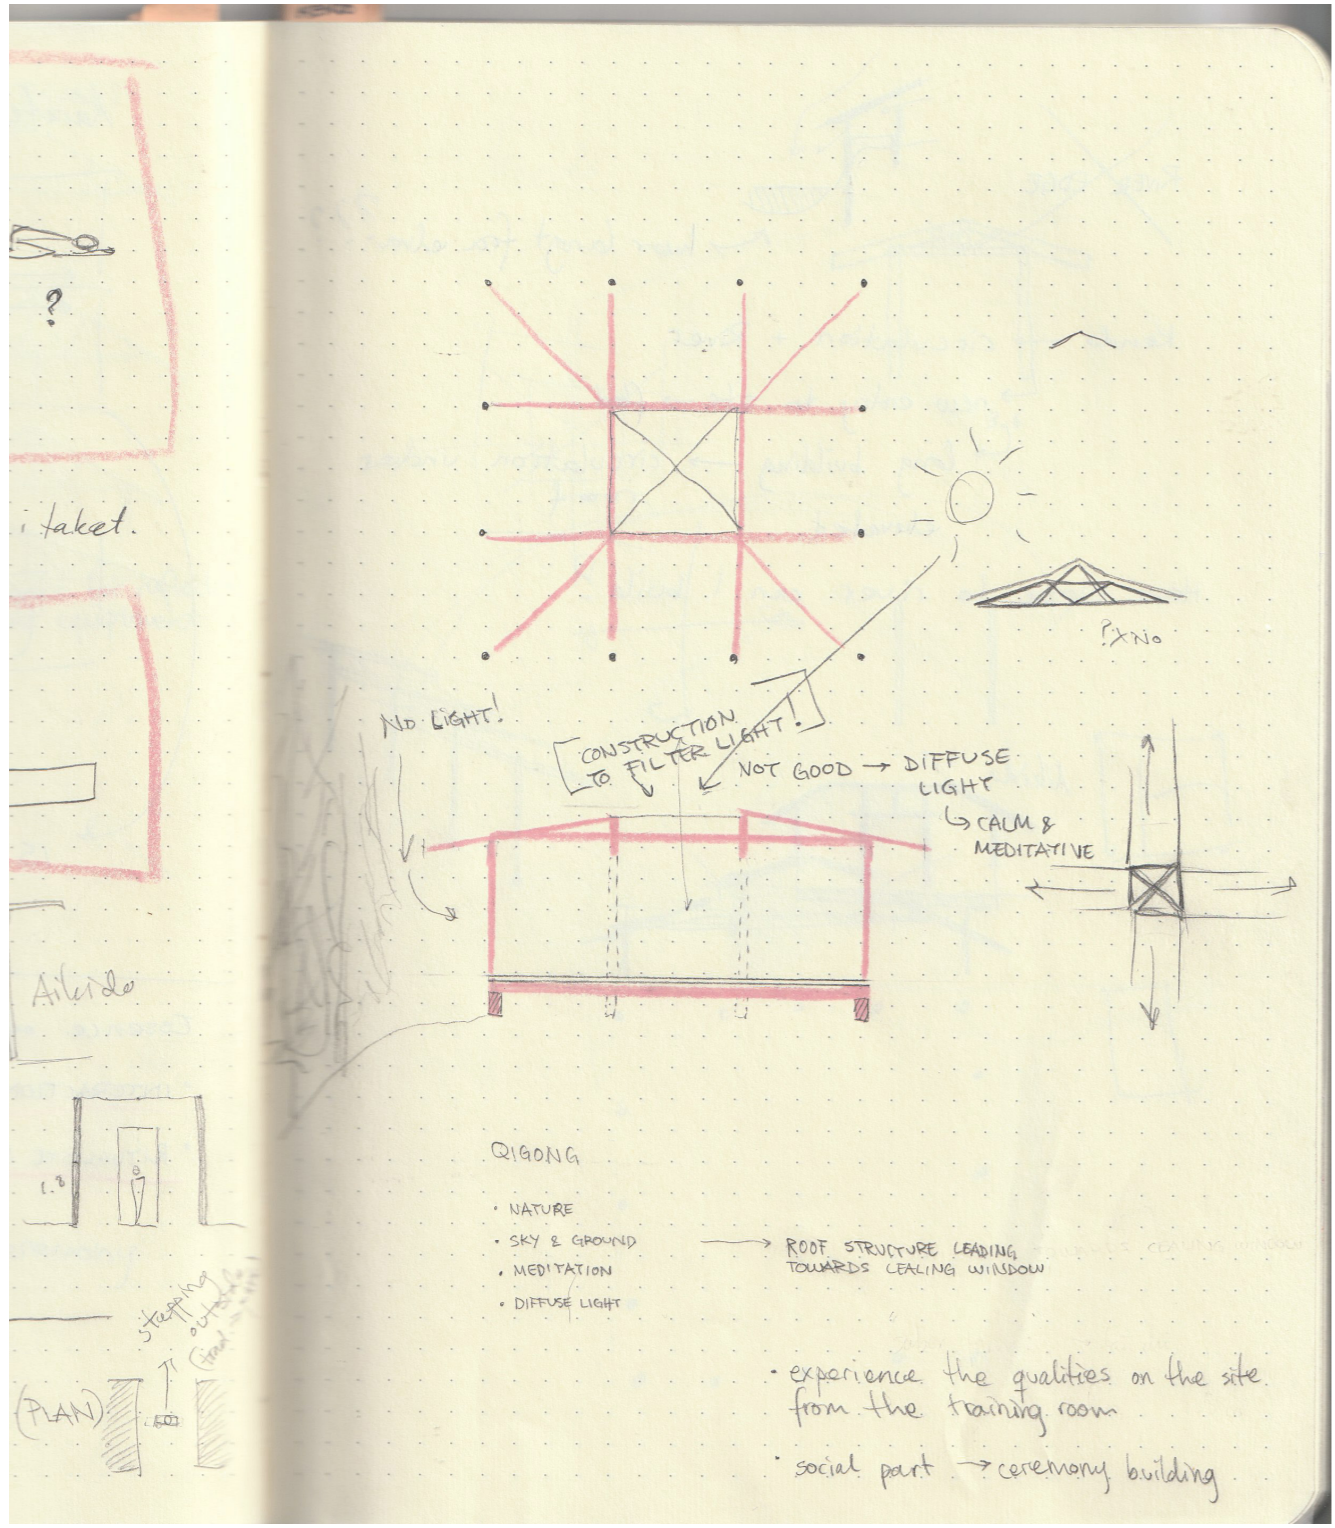 ?
i taket.
Aikido
1.8
stepping
outside
(PLAN)
? X NO
NO LIGHT!
CONSTRUCTION
TO FILTER LIGHT!
NOT GOOD → DIFFUSE
LIGHT
↳ CALM &
MEDITATIVE
QIGONG
· NATURE
· SKY & GROUND → ROOF STRUCTURE LEADING
TOWARDS CEALING WINDOW
· MEDITATION
· DIFFUSE LIGHT
· experience the qualities on the site
from the training room
· social part → ceremony building